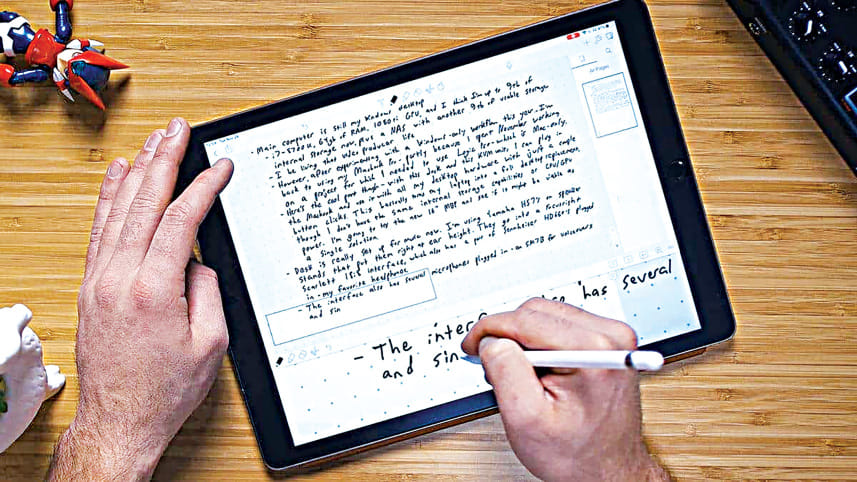 All Pages
- Main computer is still my Windows desktop
i7-8700k, 64gb of RAM, 1080ti GPU, and I think I'm up to 9tb of
internal storage now, plus a NAS with another 9tb of usable storage.
I be living that video producer life.
- However, after experimenting with a Windows-only workflow this year, I'm
back to using a MacBook Pro, partly because I spent November working
on a project for which I needed to use Logic Pro-which is Mac only.
- Here's the cool part though- with this dock and this KVM switch, I can plug in
the MacBook and use it with all my desktop hardware with just a couple
button clicks. This basically makes my laptop into a full desktop replacement
though I don't have the same internal storage capability or CPU/GPU
power. I'm going to try the new 16" MBP and see if it might be viable as
a single solution.
- Desk is really set up for audio now. I'm using Yamaha HS7s on speaker
stands that put them right at ear height. They go into a Focusrite
Scarlett 18i8 interface, which also has a pair of Sennheiser HD650s plugged
in - my favorite headphones.
- The interface also has several microphones plugged in - an SM7B for voiceovers
and sin
- The inter has several
and sin